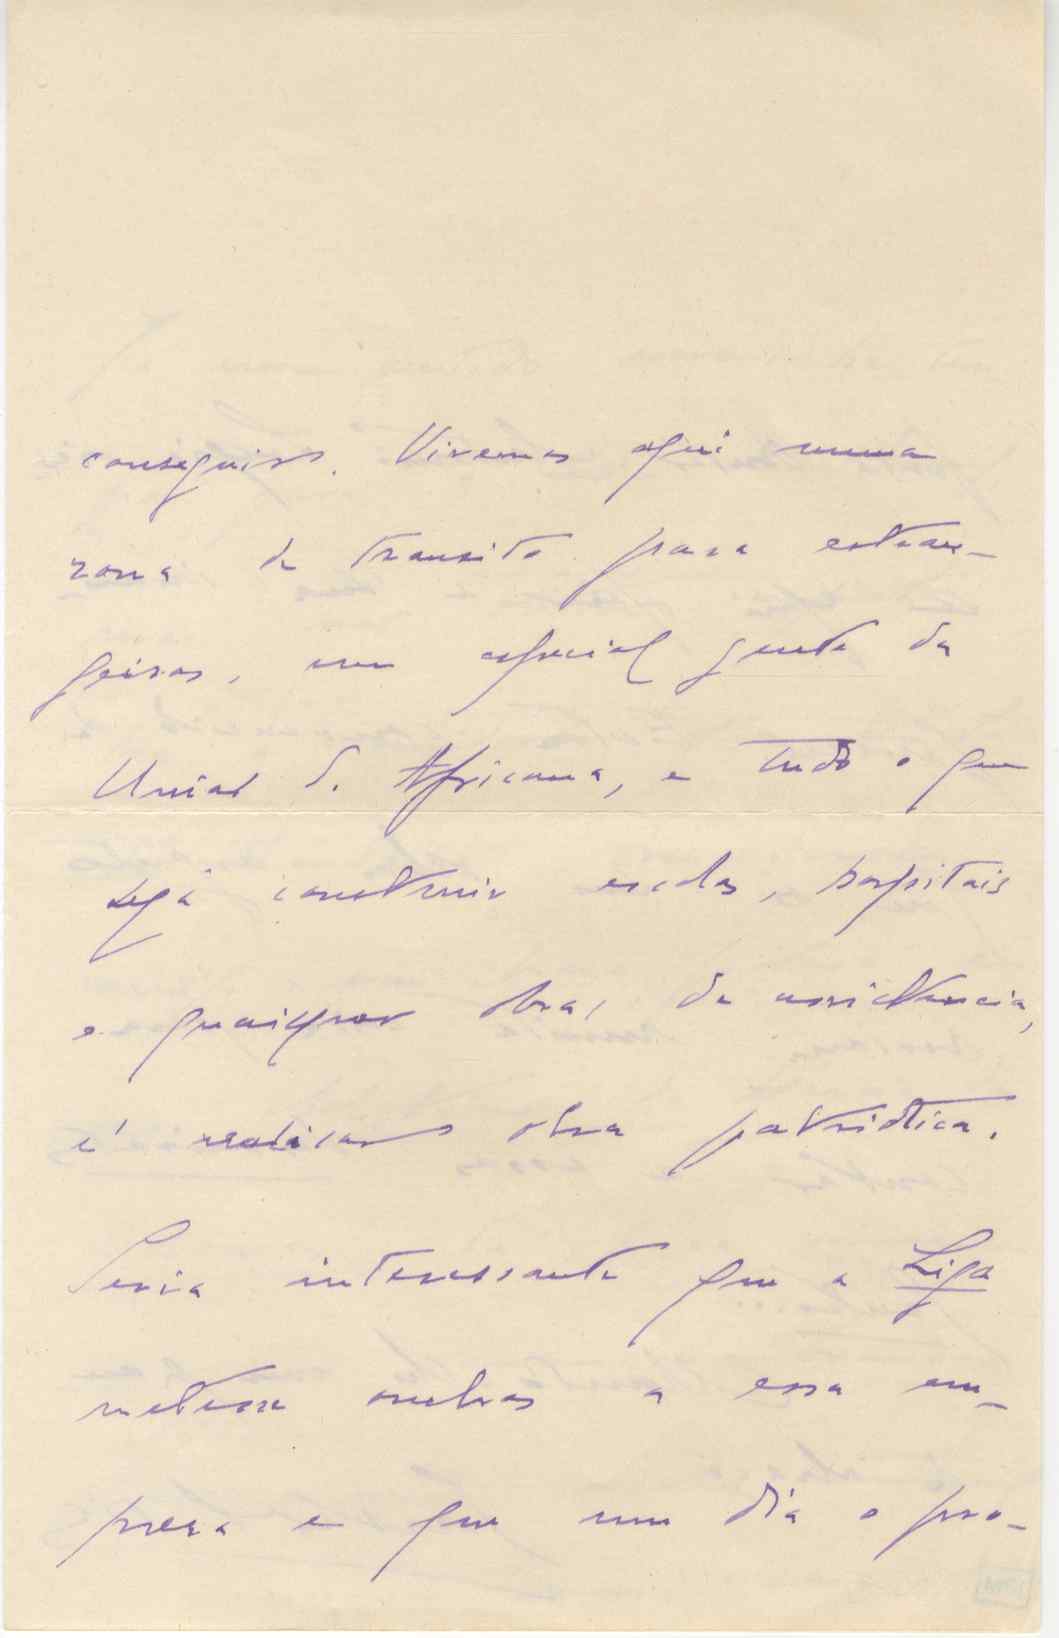 conseguirs. Vivemos aqui numa
zona de transito para estran-
geiros, em especial gente da
União S. Africana, e tudo o que
seja construir escolas, hospitais
e quaisquer obras de assistencia,
é realisar obra patriótica.
Seria interessante que a Liga
metesse ombros a essa em-
preza e que um dia o pro-